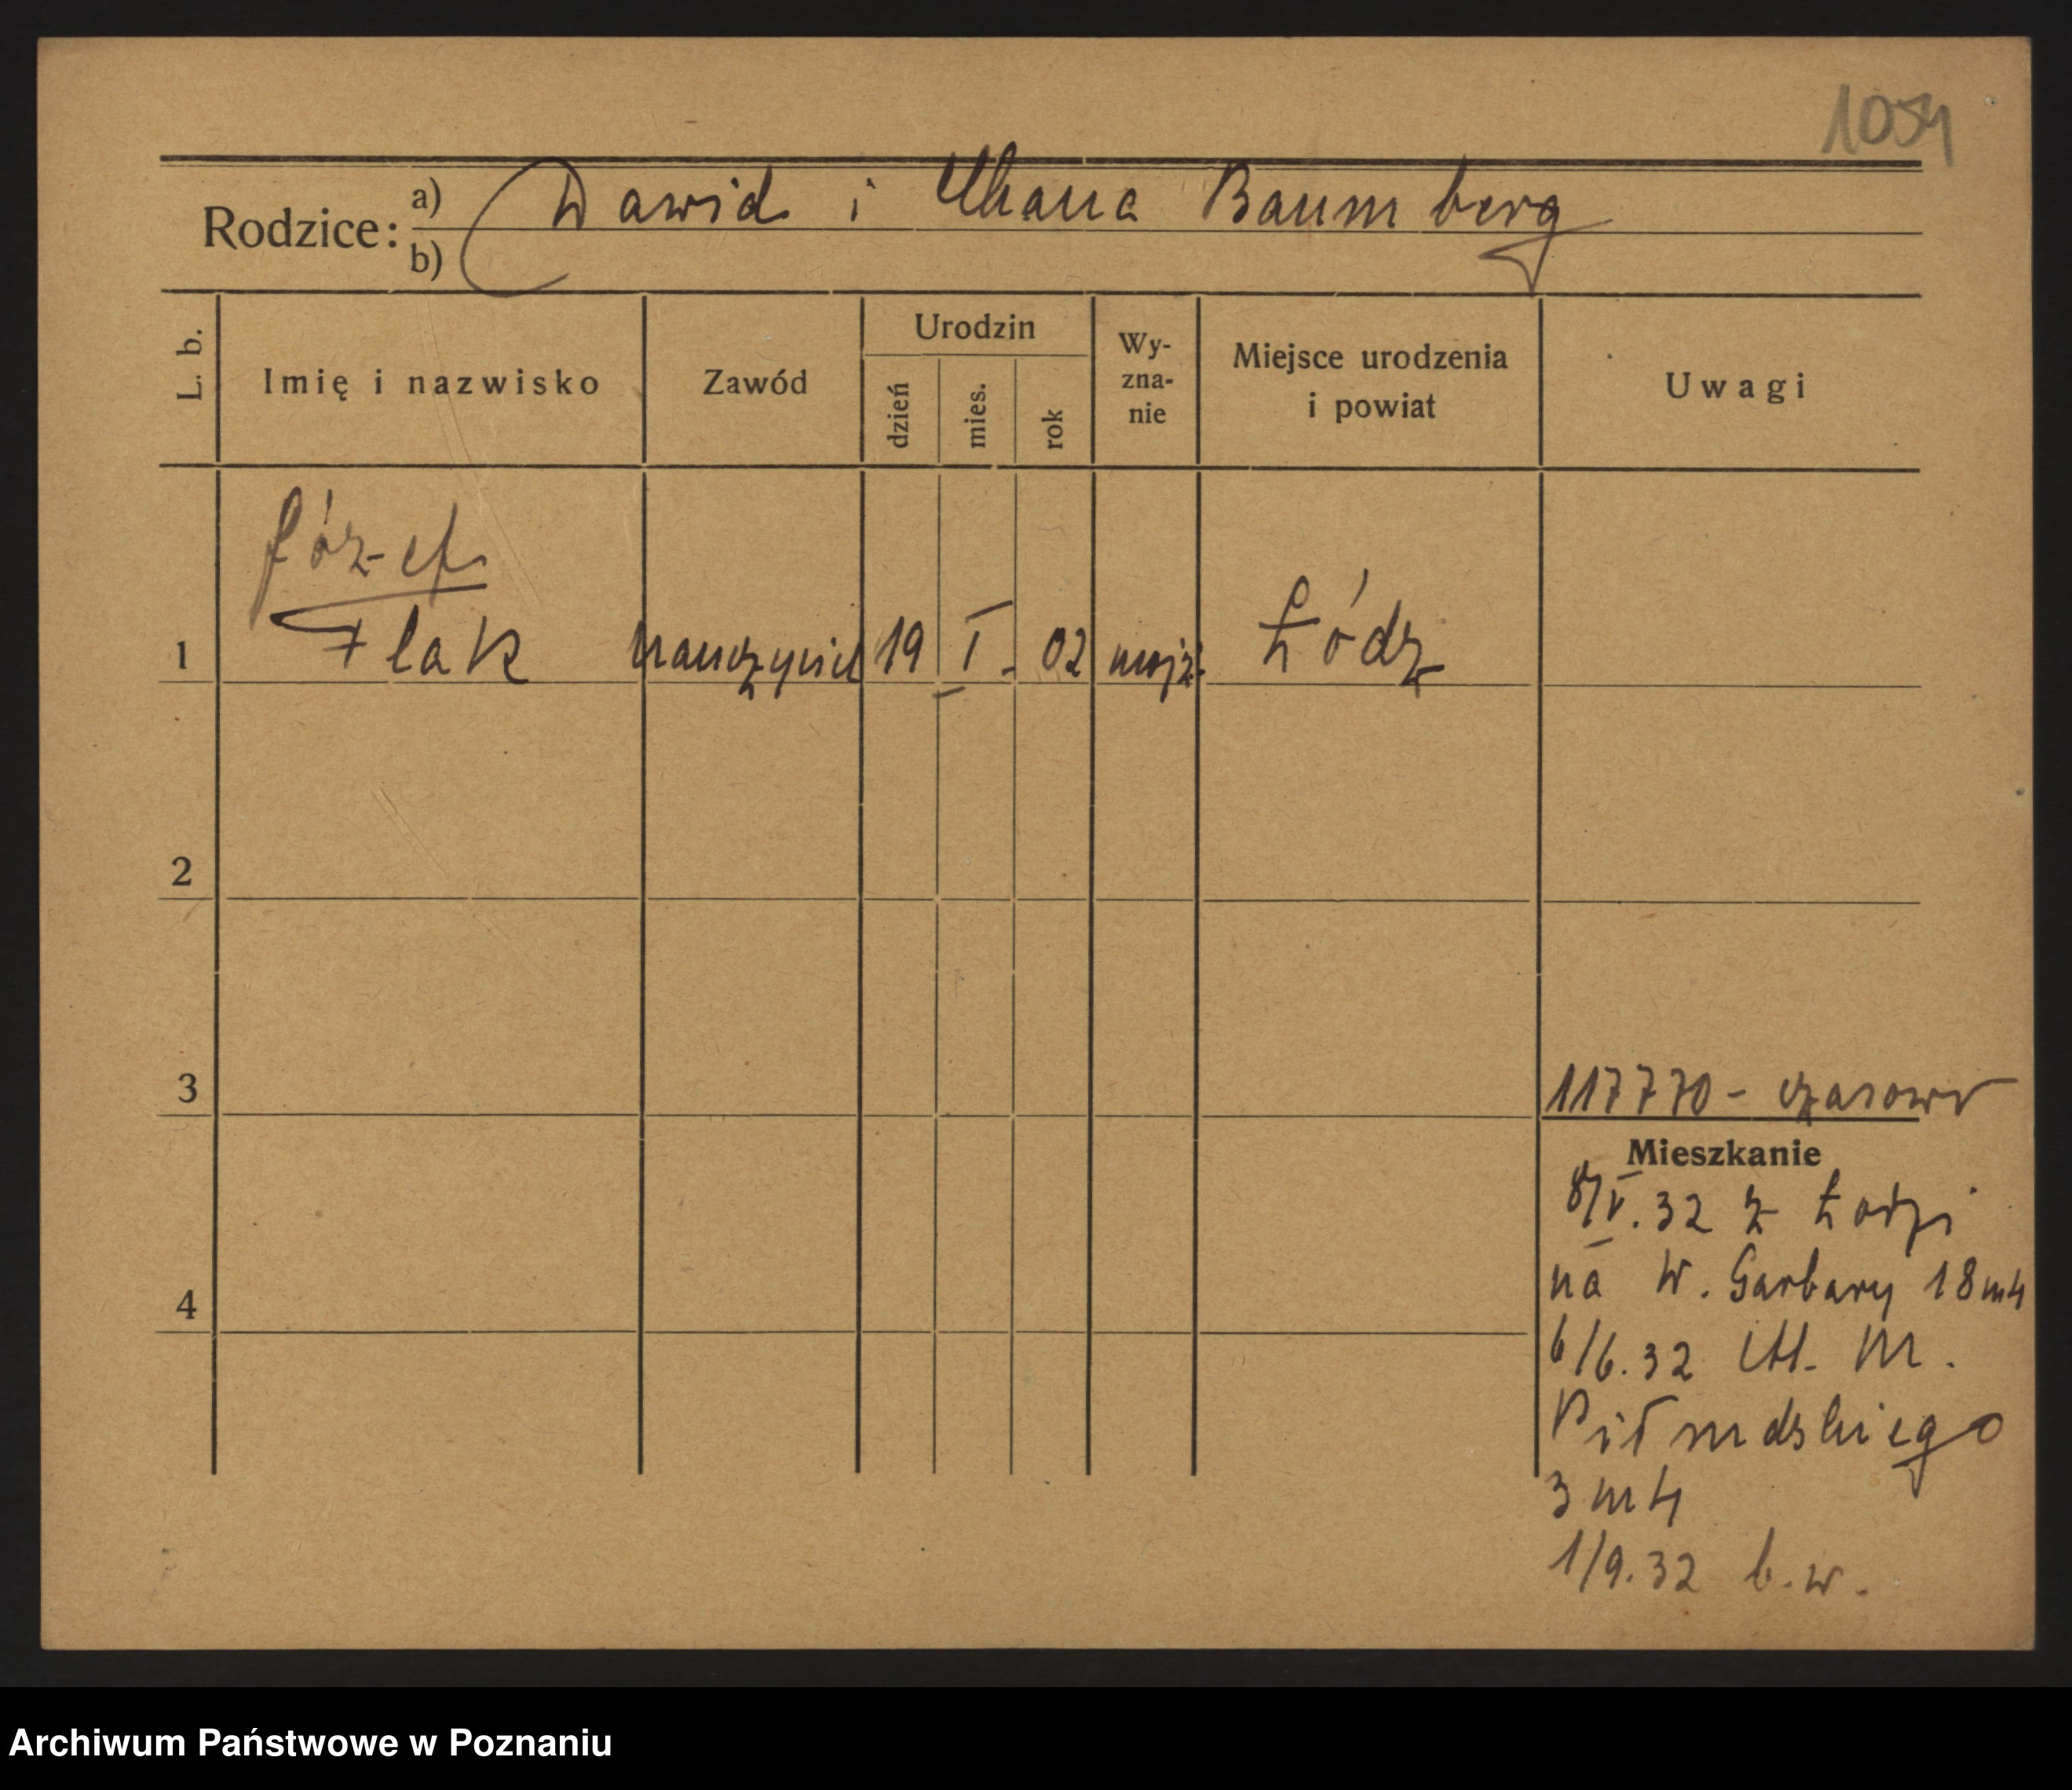 1054
Rodzice: a) Dawid i Chana Baumberg
b)
L. b.
Imię i nazwisko
Zawód
Urodzin
dzień
mies.
rok
Wy-
zna-
nie
Miejsce urodzenia
i powiat
Uwagi
Józef
1 Flak nauczyciel 19 I. 02 mojż. Łódź
2
3
117770 - czasowo
Mieszkanie
8/V. 32 z Łodzi
na W. Garbary 18 m 4
4
6/6. 32 M.
Piłsudskiego
3 m 4
1/9. 32 b. w.
Archiwum Państwowe w Poznaniu